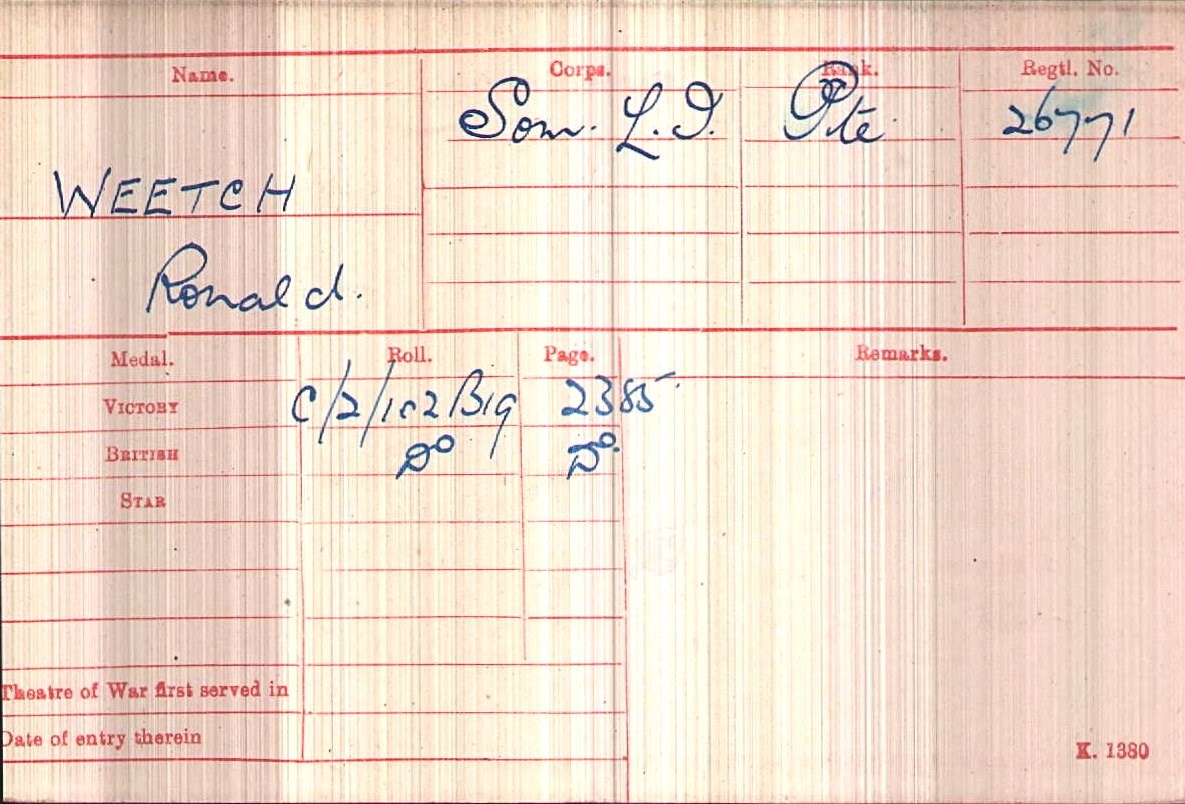 Name. Corps. Rank. Regtl. No.
Som. L.I. Pte 26771
WEETCH
Ronald.
Medal. Roll. Page. Remarks.
VICTORY C/2/102 B19 2385
BRITISH Do Do.
STAR
Theatre of War first served in
Date of entry therein
K. 1380